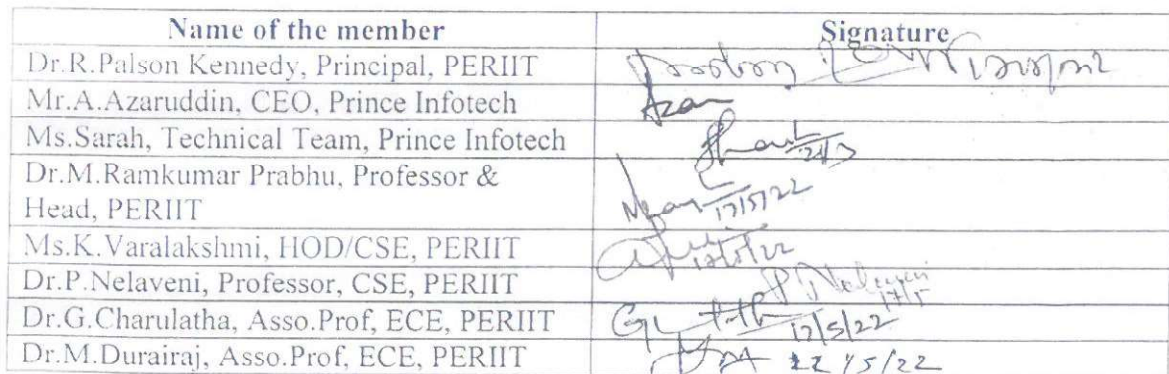 Name of the member Signature
Dr.R.Palson Kennedy, Principal, PERIIT
Mr.A.Azaruddin, CEO, Prince Infotech Azar
Ms.Sarah, Technical Team, Prince Infotech
Dr.M.Ramkumar Prabhu, Professor &
Head, PERIIT 17/5/22
Ms.K.Varalakshmi, HOD/CSE, PERIIT 17/5/22
Dr.P.Nelaveni, Professor, CSE, PERIIT P Nelaveni 17/5
Dr.G.Charulatha, Asso.Prof, ECE, PERIIT 17/5/22
Dr.M.Durairaj, Asso.Prof, ECE, PERIIT